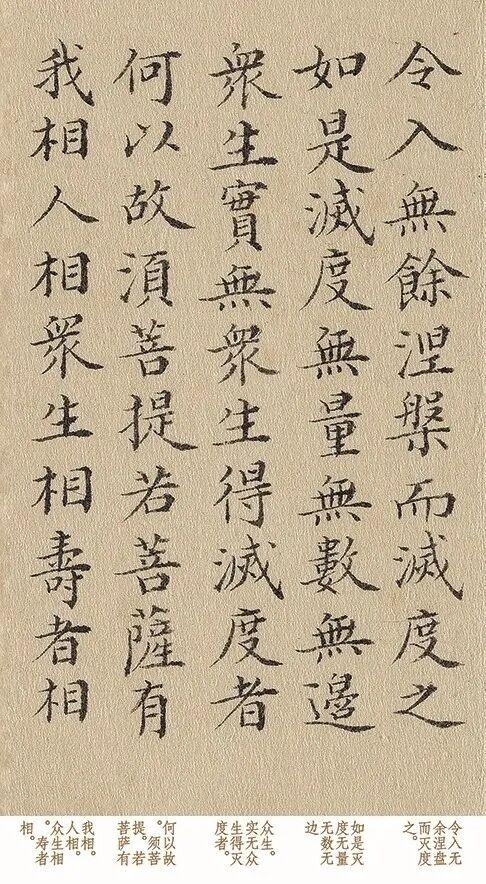 令入無餘涅槃而滅度之
如是滅度無量無數無邊
衆生實無衆生得滅度者
何以故須菩提若菩薩有
我相人相衆生相壽者相
令入无
余涅盘
而灭度
之。
如是灭
度无量
无数无
边
众生。
实无众
生得灭
度者。
何以故
。须菩
提。若
菩萨有
我相。
人相。
众生相
。寿者
相。